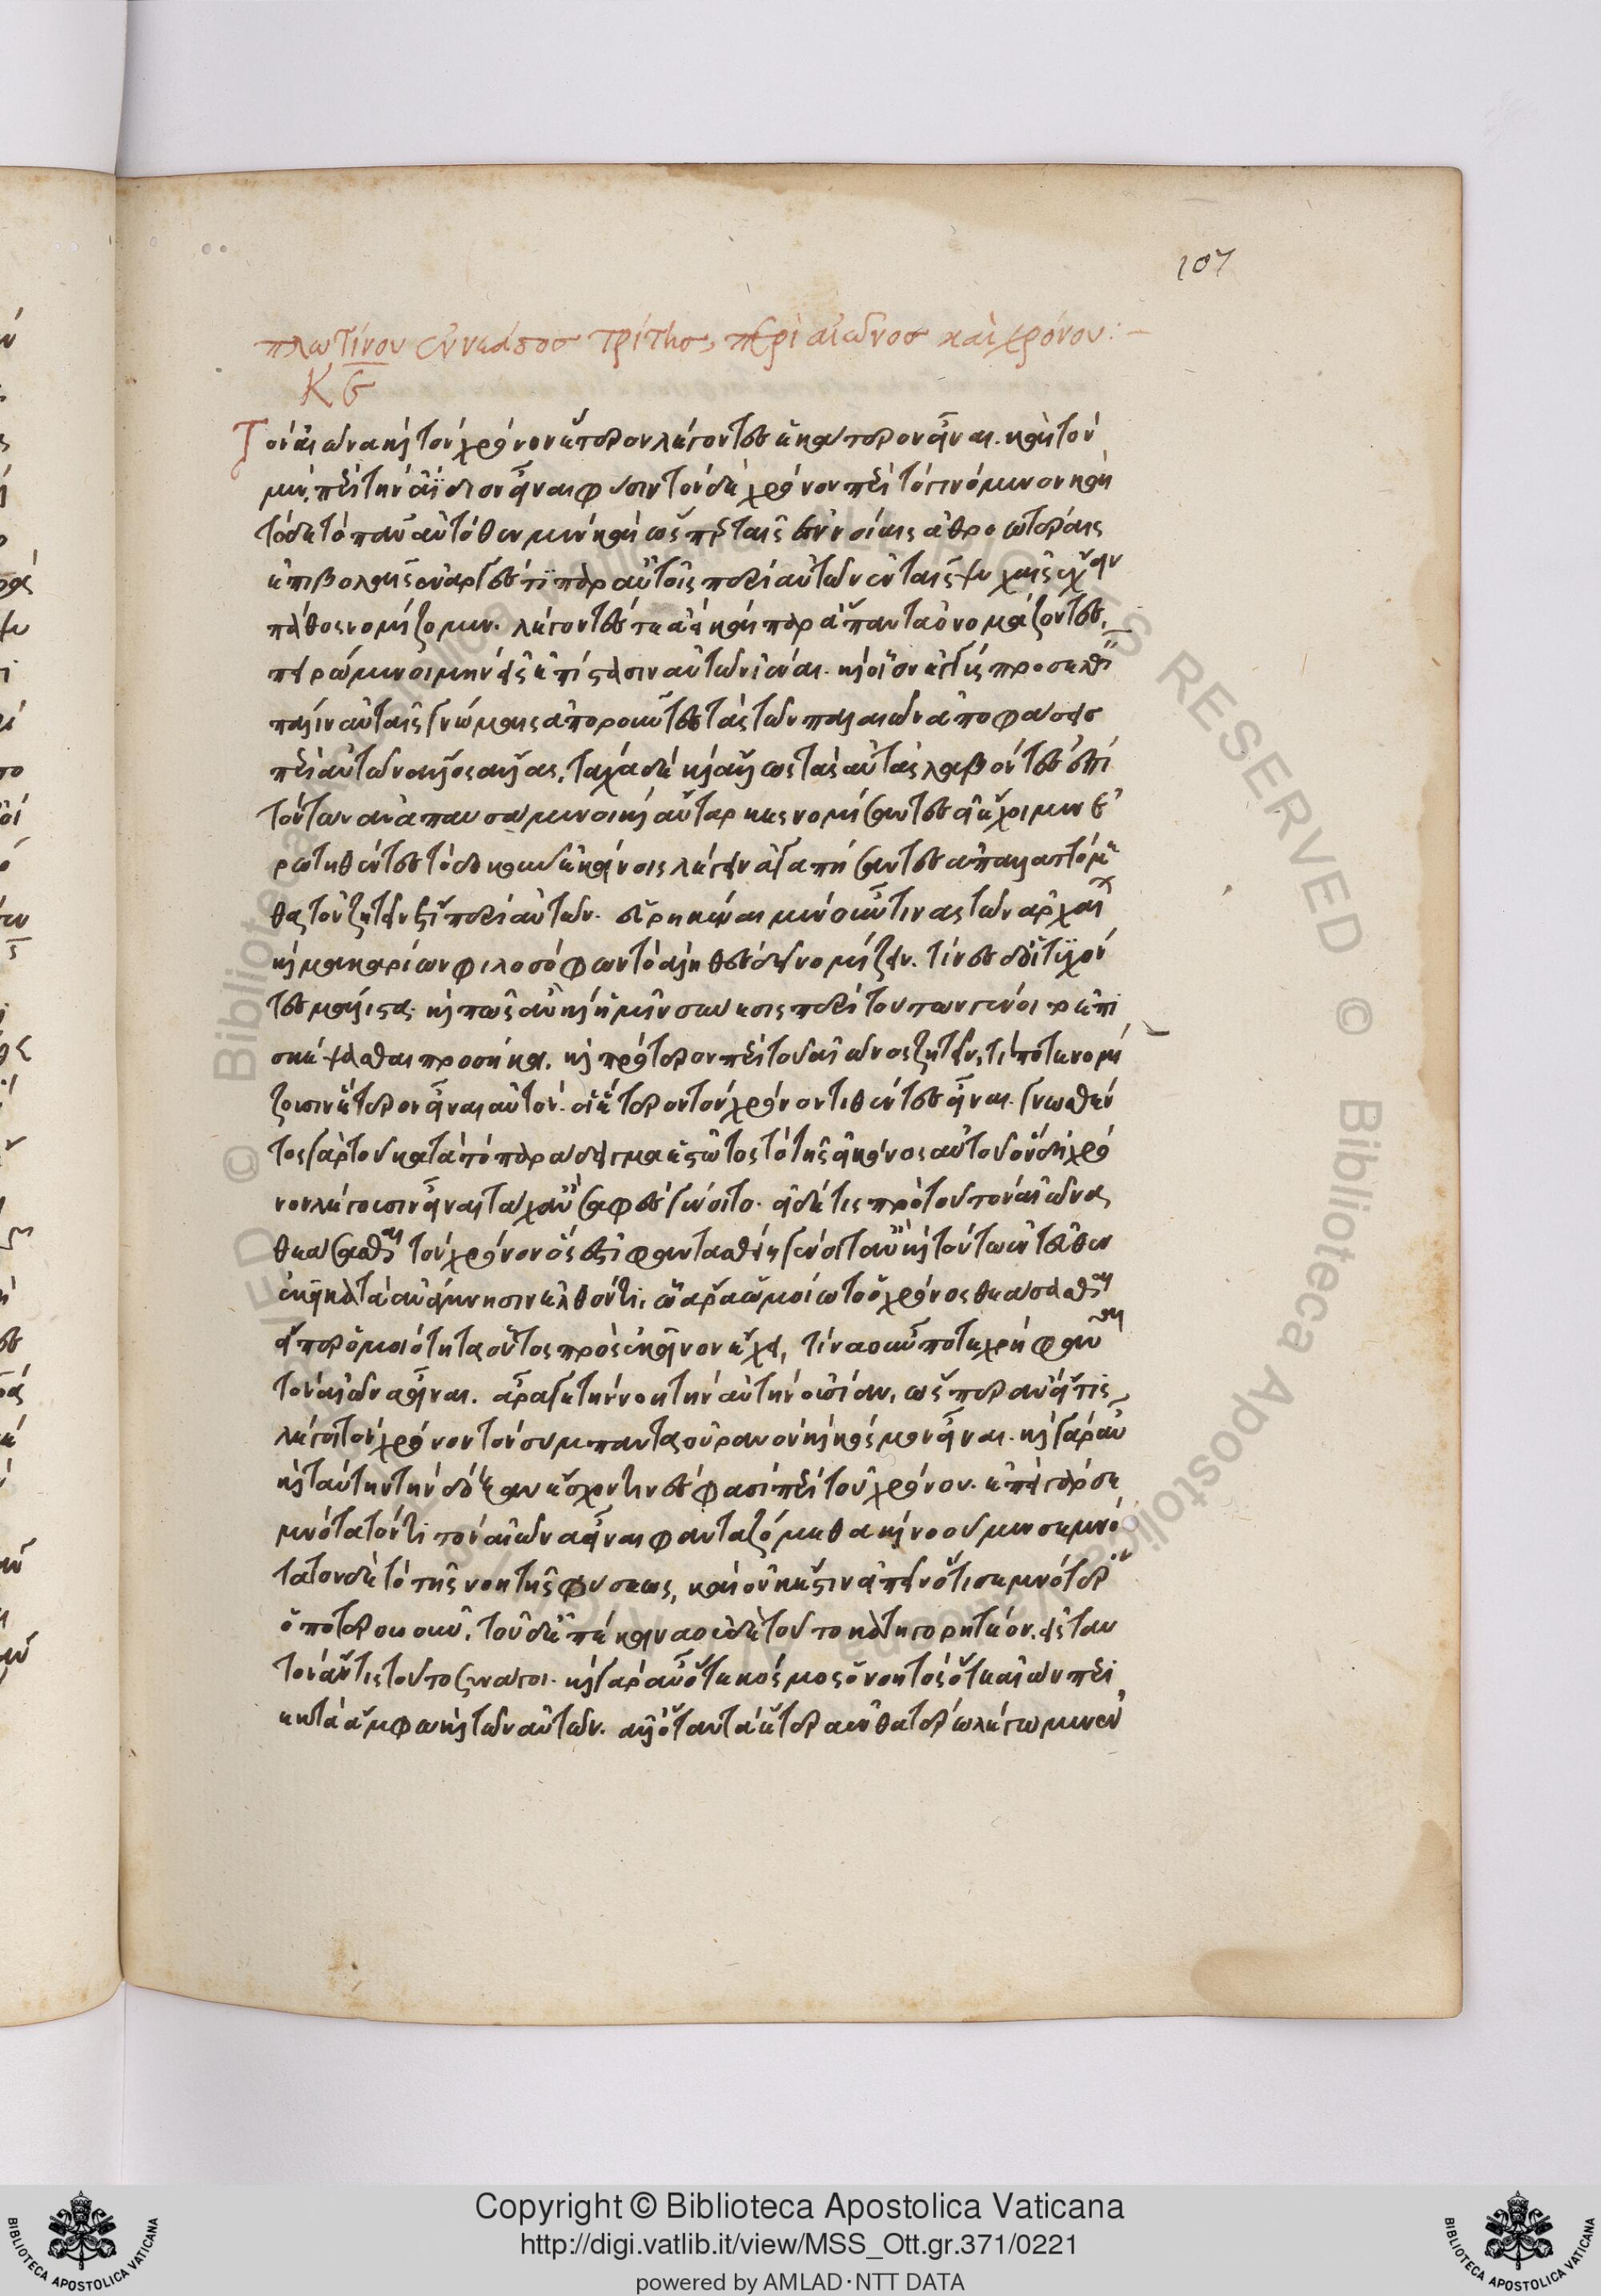 πλωτίνου ἐννεάδος τρίτης, περὶ αἰῶνος καὶ χρόνου:-
Κϛ
Τὸν αἰῶνα καὶ τὸν χρόνον ἕτερον λέγοντες ἑκάτερον εἶναι. καὶ τὸν
μὲν, περὶ τὴν ἀΐδιον εἶναι φύσιν τὸν δὲ χρόνον περὶ τὸ γινόμενον καὶ
τόδε τὸ πᾶν αὐτόθεν μὲν καὶ ὥσπερ ταῖς ἐννοίαις ἀθροωτέραις
ἐπιβολαῖς ἐναργές τι παρ αὐτοῖς περὶ αὐτῶν ἐν ταῖς ψυχαῖς ἔχειν
πάθος νομίζομεν. λέγοντές τε ἀεὶ καὶ παρ ἅπαντα ὀνομάζοντες,
πειρώμενοι μὴν εἰς ἐπίστασιν αὐτῶν ἰέναι. καὶ οἷον ἐγγὺς προσελθεῖν
πάλιν αὖ ταῖς γνώμαις ἀποροῦντες τὰς τῶν παλαιῶν ἀποφάσεις
περὶ αὐτῶν ἄλλος ἄλλας, τάχα δὲ καὶ ἄλλως τὰς αὐτὰς λαβόντες ἐπὶ
τούτων ἀναπαυσάμενοι καὶ αὔταρκες νομίσαντες εἰ ἔχοιμεν ἐ
ρωτηθέντες τὸ δοκοῦν ἐκείνοις λέγειν ἀγαπήσαντες ἀπαλλαττόμε
θα τοῦ ζητεῖν ἔτι περὶ αὐτῶν. εὑρηκέναι μὲν οὖν τινας τῶν ἀρχαίων
καὶ μακαρίων φιλοσόφων τὸ ἀληθὲς δεῖ νομίζειν. τίνες δ' οἱ τυχόν
τες μάλιστα. καὶ πῶς ἂν καὶ ἡμῖν σύνεσις περὶ τούτων γένοιτο ἐπι
σκέψασθαι προσήκει. καὶ πρότερον περὶ τοῦ αἰῶνος ζητεῖν, τί ποτε νομί
ζουσιν ἕτερον εἶναι αὐτὸν. οἱ ἕτερον τὸν χρόνον τιθέντες εἶναι. γνωσθέν
τος γὰρ τοῦ κατὰ τὸ παράδειγμα ἑστῶτος τὸ τῆς εἰκόνος αὐτοῦ ὃν δὴ χρό
νον λέγουσιν εἶναι τάχ ἂν σαφὲς γένοιτο. εἰ δέ τις πρὸ τοῦ τὸν αἰῶνα
θεάσασθαι τὸν χρόνον ὅς ἐστι φαντασθείη γένοιτ ἂν καὶ τούτω ἐντεῦθεν
ἐκεῖ κατὰ ἀνάμνησιν ἐλθόντι, ᾧ ἄρα ὡμοίωτο ὁ χρόνος θεάσασθαι
εἴπερ ὁμοιότητα οὗτος πρὸς ἐκεῖνον ἔχει, τίνα οὖν ποτε χρὴ φάναι
τὸν αἰῶνα εἶναι. ἆρα γε τὴν νοητὴν αὐτὴν οὐσίαν, ὥσπερ ἂν εἴ τις
λέγοι τὸν χρόνον τὸν σύμπαντα οὐρανὸν καὶ κόσμον εἶναι. καὶ γὰρ αὖ
καὶ ταύτην τὴν δόξαν ἔσχον τινές φασι περὶ τοῦ χρόνου. ἐπεὶ γὰρ σε
μνότατόν τι τὸν αἰῶνα εἶναι φανταζόμεθα καὶ νοοῦμεν σεμνό
τατον δὲ τὸ τῆς νοητῆς φύσεως, καὶ οὐκ ἔστιν εἰπεῖν ὅτι σεμνότερον
ὁποτερουοῦν. τοῦ δ ἐπέκεινα οὐδὲ τοῦτο κατηγορητέον. εἰς ταυ
τὸν ἄν τις τοῦτο συνάγοι. καὶ γὰρ αὖ ὅ τε κόσμος ὁ νοητὸς ὅ τε αἰὼν περι
εκτὰ ἄμφω καὶ τῶν αὐτῶν. ἀλλ' ὅταν τὰ ἕτερα ἐν θατέρω λέγωμεν ἐν